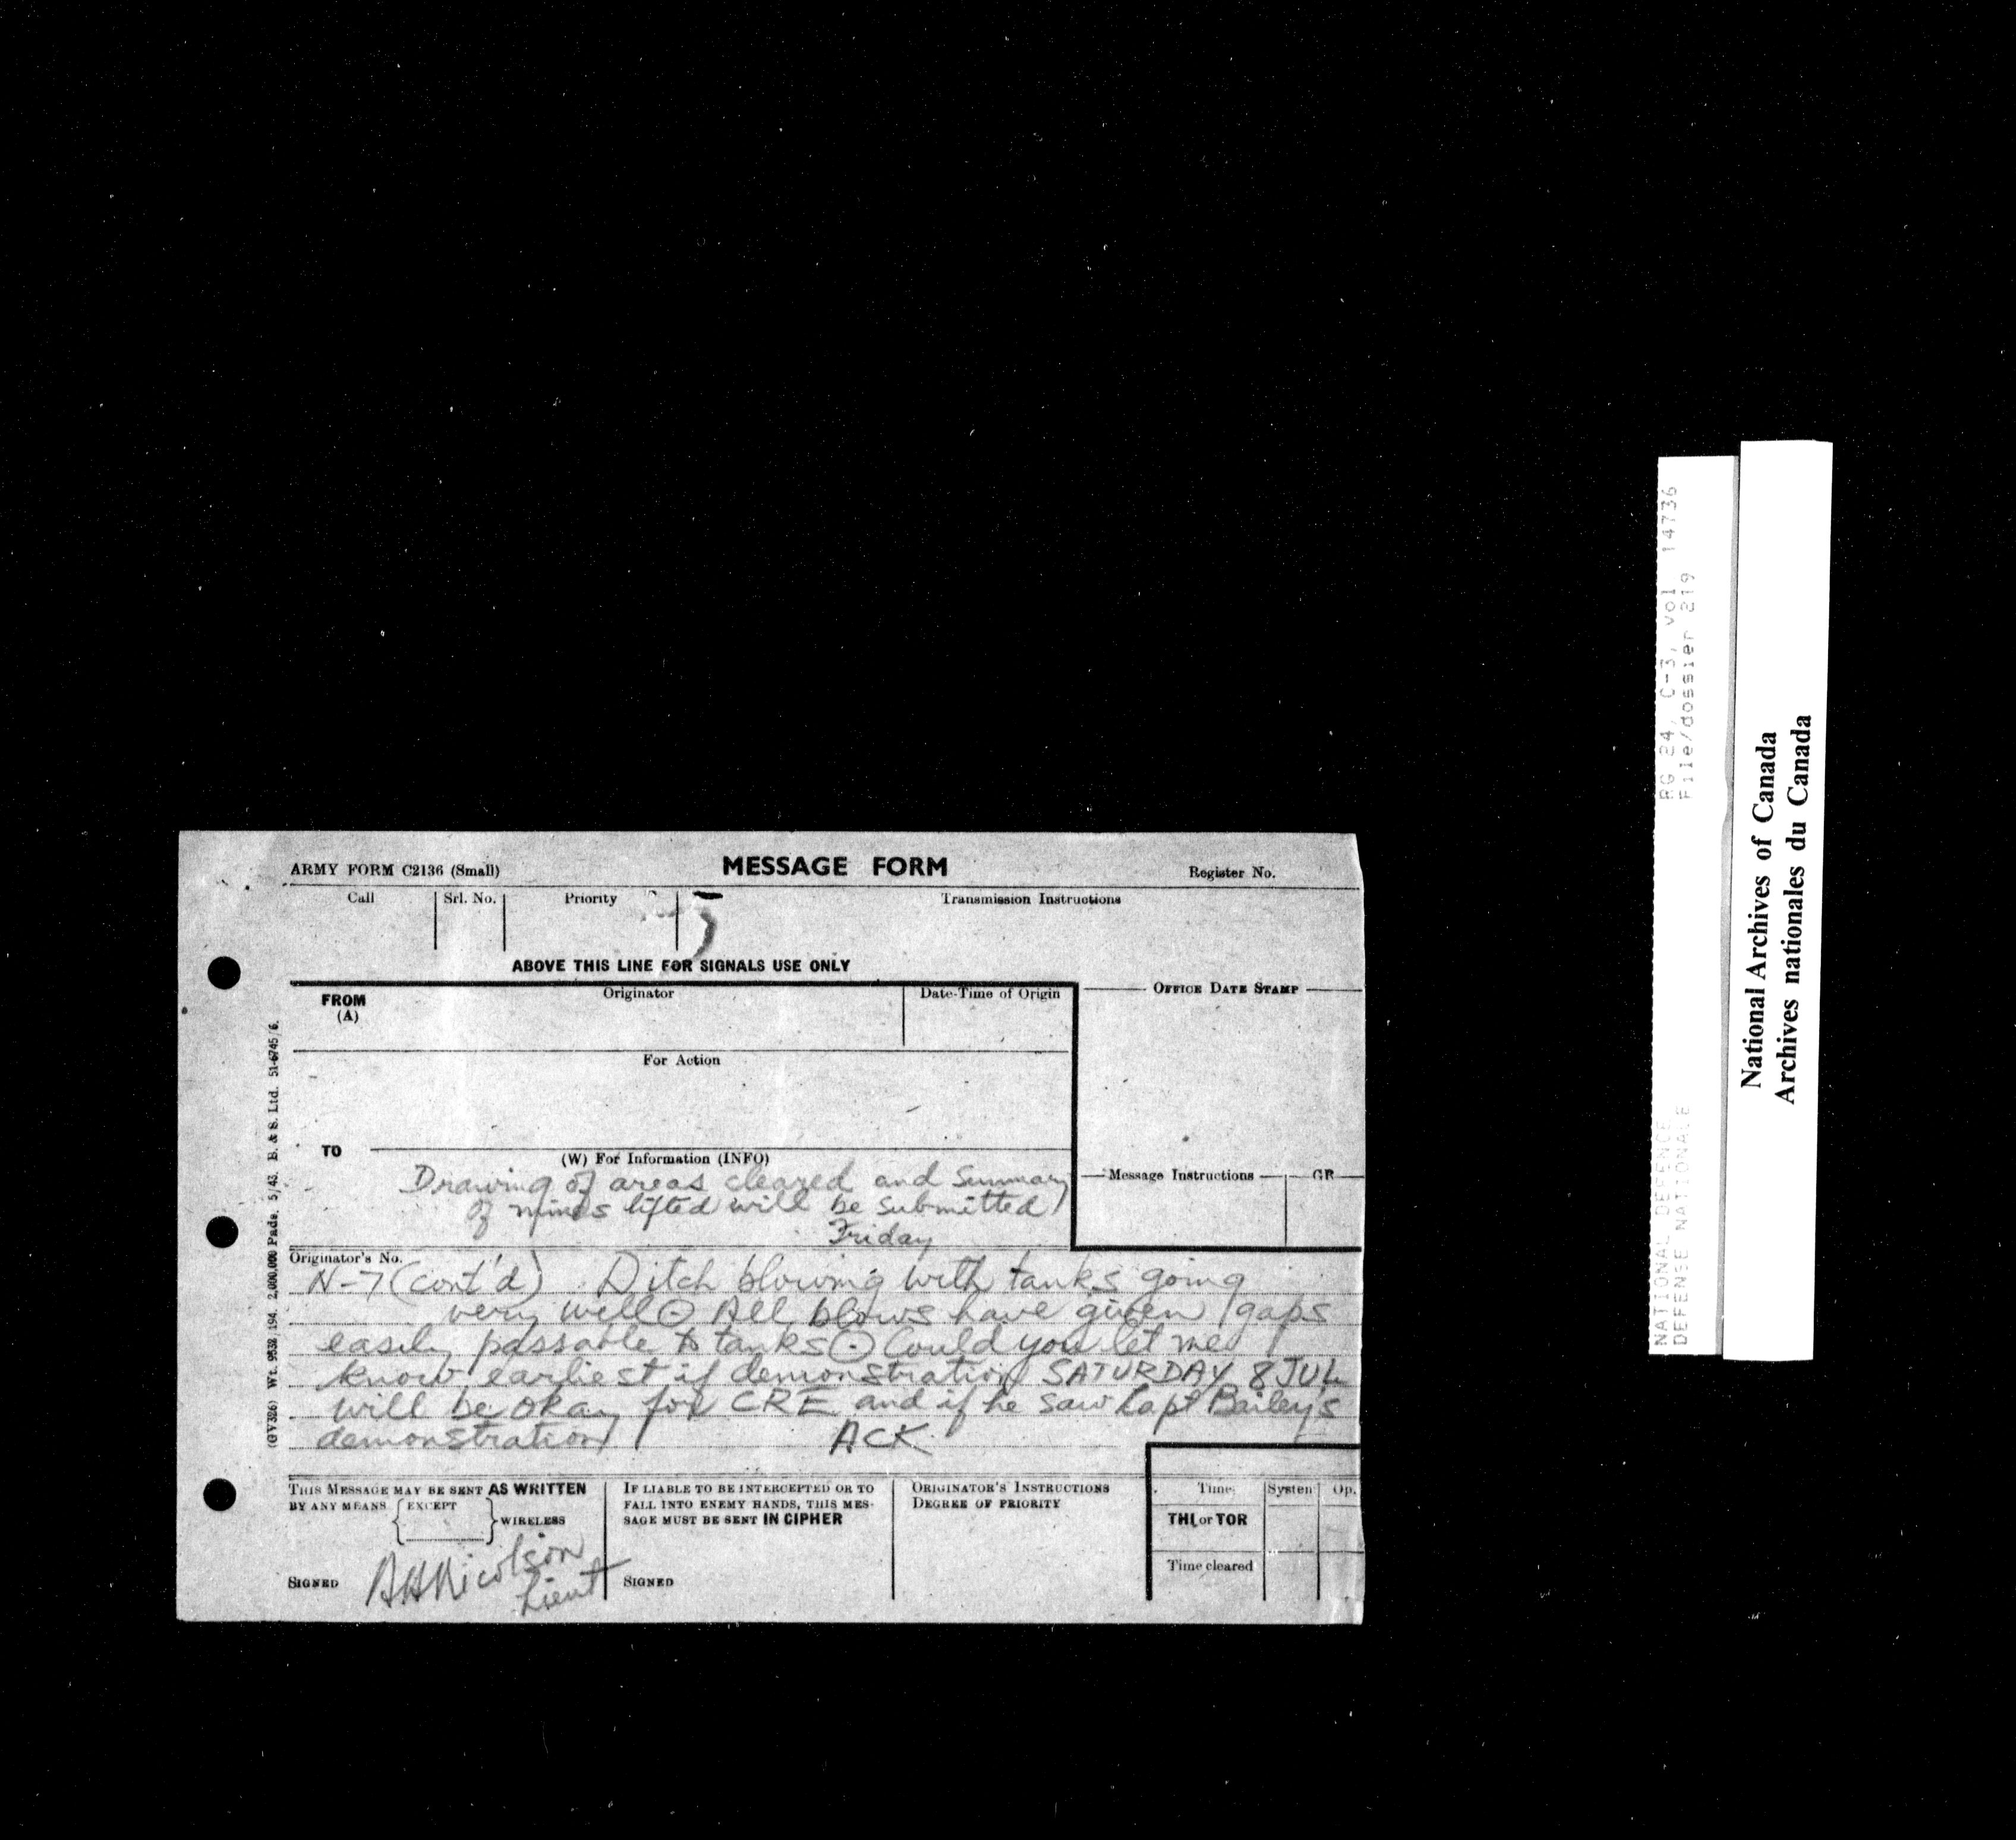 ARMY FORM C2136 (Small)
MESSAGE FORM
Register No.
Call
Srl. No.
Priority
5
Transmission Instructions
ABOVE THIS LINE FOR SIGNALS USE ONLY
FROM
(A)
Originator
Date-Time of Origin
OFFICE DATE STAMP
For Action
TO
(W) For Information (INFO)
Message Instructions
GR
Drawing of areas cleared and Summary
of mines lifted will be Submitted
Friday
Originator's No.
N-7 (cont'd) Ditch blowing with tanks going
very well ⊙ All blows have given gaps
easily passable to tanks ⊙ Could you let me
know earliest if demonstration SATURDAY 8 JUL
will be okay for CRE and if he saw Capt Bailey's
demonstration ACK
THIS MESSAGE MAY BE SENT AS WRITTEN
BY ANY MEANS { EXCEPT } WIRELESS
SIGNED
A H Nicolson
Lieut
IF LIABLE TO BE INTERCEPTED OR TO
FALL INTO ENEMY HANDS, THIS MES-
SAGE MUST BE SENT IN CIPHER
SIGNED
ORIGINATOR'S INSTRUCTIONS
DEGREE OF PRIORITY
Time
System
Op.
THI or TOR
Time cleared
(GV326) Wt. 9532/194. 2,000,000 Pads. 5/43. B. & S. Ltd. 51-6745/6.
RG 24, C-3, vol 14736
File/dossier 219
NATIONAL DEFENCE
DEFENSE NATIONALE
National Archives of Canada
Archives nationales du Canada